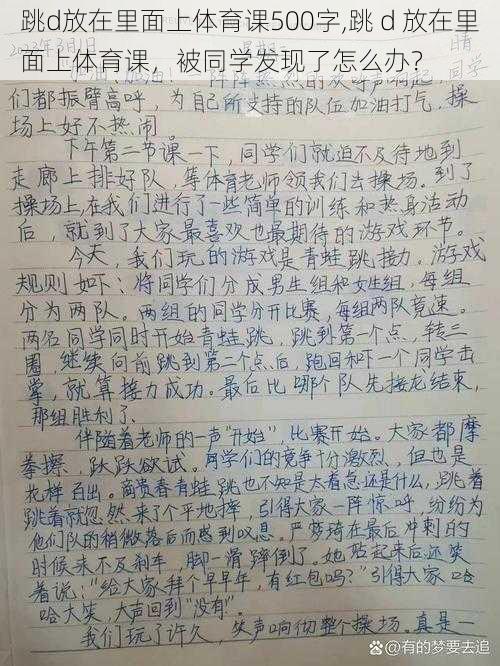 跳d放在里面上体育课500字,跳 d 放在里
面上体育课，被同学发现了怎么办？
2023年3月1日 晴
加油！加油！一阵阵热烈的欢呼声响起，同学
们都振臂高呼，为自己所支持的队伍加油打气，操
场上好不热闹。
下午第二节课一下，同学们就迫不及待地到
走廊上排好队，等体育老师领我们去操场。到了
操场上，在我们进行了一些简单的训练和热身活动
后，就到了大家最喜欢也最期待的游戏环节。
今天，我们玩的游戏是青蛙跳接力。游戏
规则如下：将同学们分成男生组和女生组，每组
分为两队。两组的同学分开比赛，每组两队竞速。
两名同学同时开始青蛙跳，跳到第一个点，转三
圈，继续向前跳到第二个点后，跑回和下一个同学击
掌，就算接力成功。最后比哪个队先接龙结束，
那组胜利了。
伴随着老师的一声“开始”，比赛开始。大家都摩
拳擦，跃跃欲试。同学们的竞争十分激烈，但也是
花样百出。商贵春青蛙跳也不知是太着急还是什么，跳着
跳着就忽然来了个平地摔，引得大家一阵惊呼，纷纷为
他们队的稍微落后而感到叹息。严梦琦在最后冲刺的
时候来不及刹车，脚一滑蹿倒了。她站起来后还笑
着说：“给大家拜个早早年，有红包吗？”引得大家哈
哈大笑，大声回到“没有”。
我们玩了许久，笑声响彻整个操场。真是一
@有的梦要去追